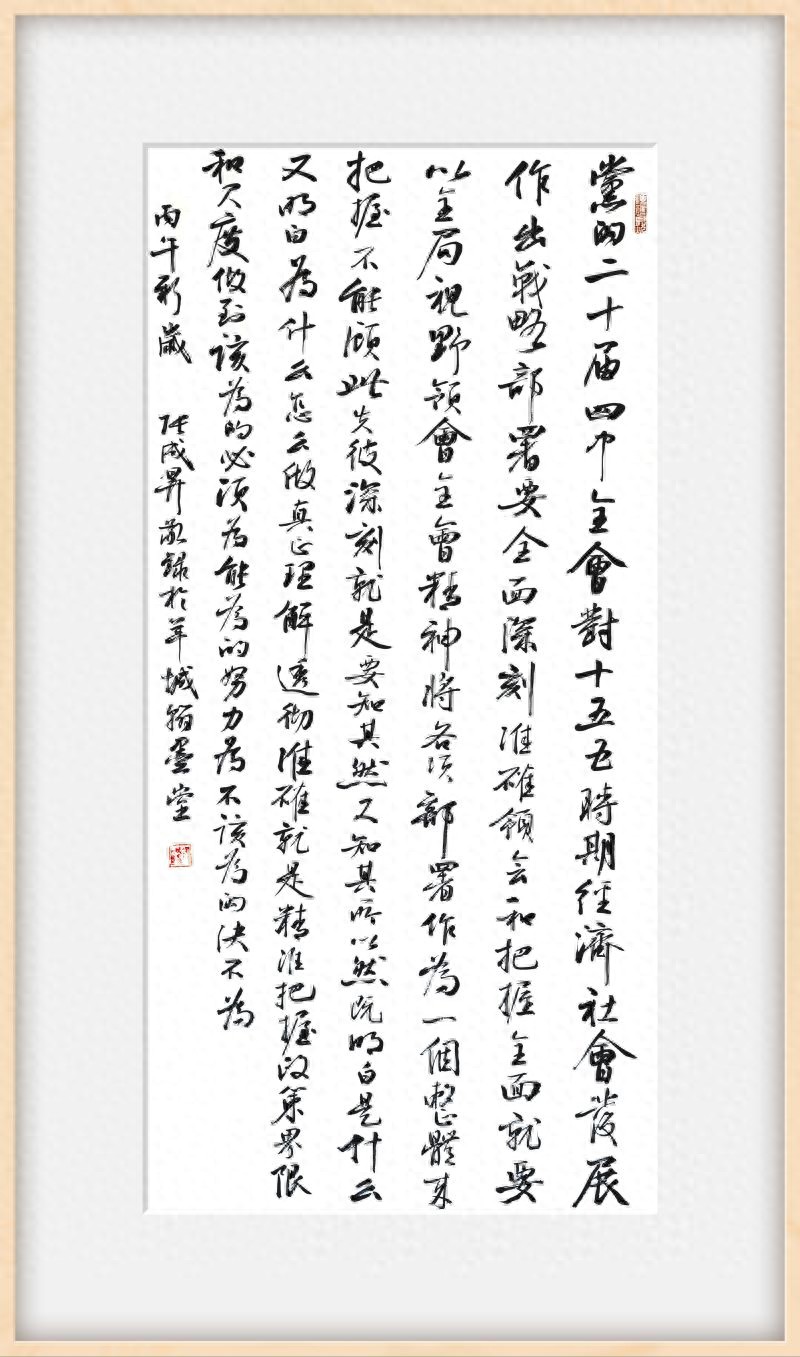 黨的二十届四中全會對十五五時期經濟社會發展
作出戰略部署要全面深刻准確領会和把握全面就要
以全局視野領會全會精神將各项部署作為一個整體来
把握不能顾此失彼深刻就是要知其然又知其所以然既明白是什么
又明白為什么怎么做真正理解透彻准確就是精准把握政策界限
和尺度做到该為的必须為能為的努力為不该為的决不為
丙午新歲 陸成昇敬録於羊城翰墨堂